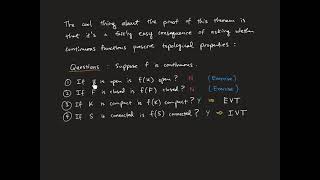 The cool thing about the proof of this theorem is
that it's a fairly easy consequence of asking whether
continuous functions preserve topological properties:
Questions: Suppose f is continuous.
① If U is open is f(U) open? N (Exercise)
② If F is closed is f(F) closed? N (Exercise)
③ If K is compact is f(K) compact? Y ⇒ EVT
④ If S is connected is f(S) connected? Y ⇒ IVT